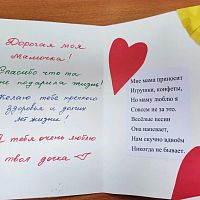 Дорогая моя
Мамочка!
Спасибо что ты
мне подарила жизнь!
Желаю тебе крепкого
здоровья и долгих
лет жизни!
Я тебя очень люблю
твоя дочка
Мне мама приносит
Игрушки, конфеты,
Но маму люблю я
Совсем не за это.
Весёлые песни
Она напевает,
Нам скучно вдвоём
Никогда не бывает.